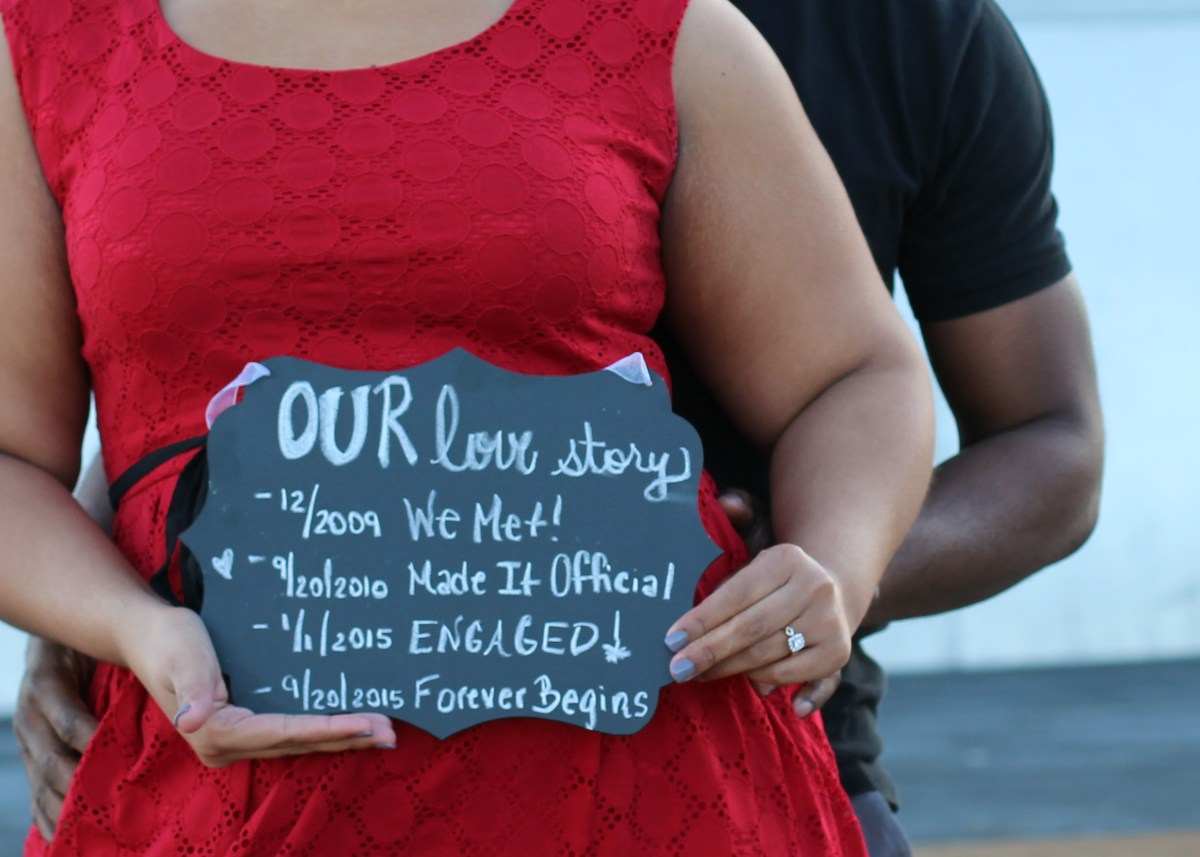 OUR love story
- 12/2009 We Met!
- 9/20/2010 Made It Official
- 1/1/2015 ENGAGED!
- 9/20/2015 Forever Begins